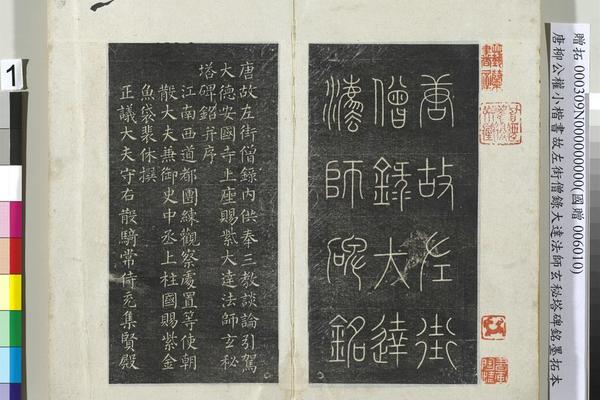 贈拓 000309N000000000(國贈 006010)
唐柳公權小楷書故左街僧錄大達法師玄秘塔碑銘墨拓本
唐故左街
僧錄大達
灋師碑銘
唐故左街僧錄內供奉三教談論引駕
大德安國寺上座賜紫大達法師玄秘
塔碑銘并序
江南西道都團練觀察處置等使朝
散大夫兼御史中丞上柱國賜紫金
魚袋裴休撰
正議大夫守右散騎常侍充集賢殿
1